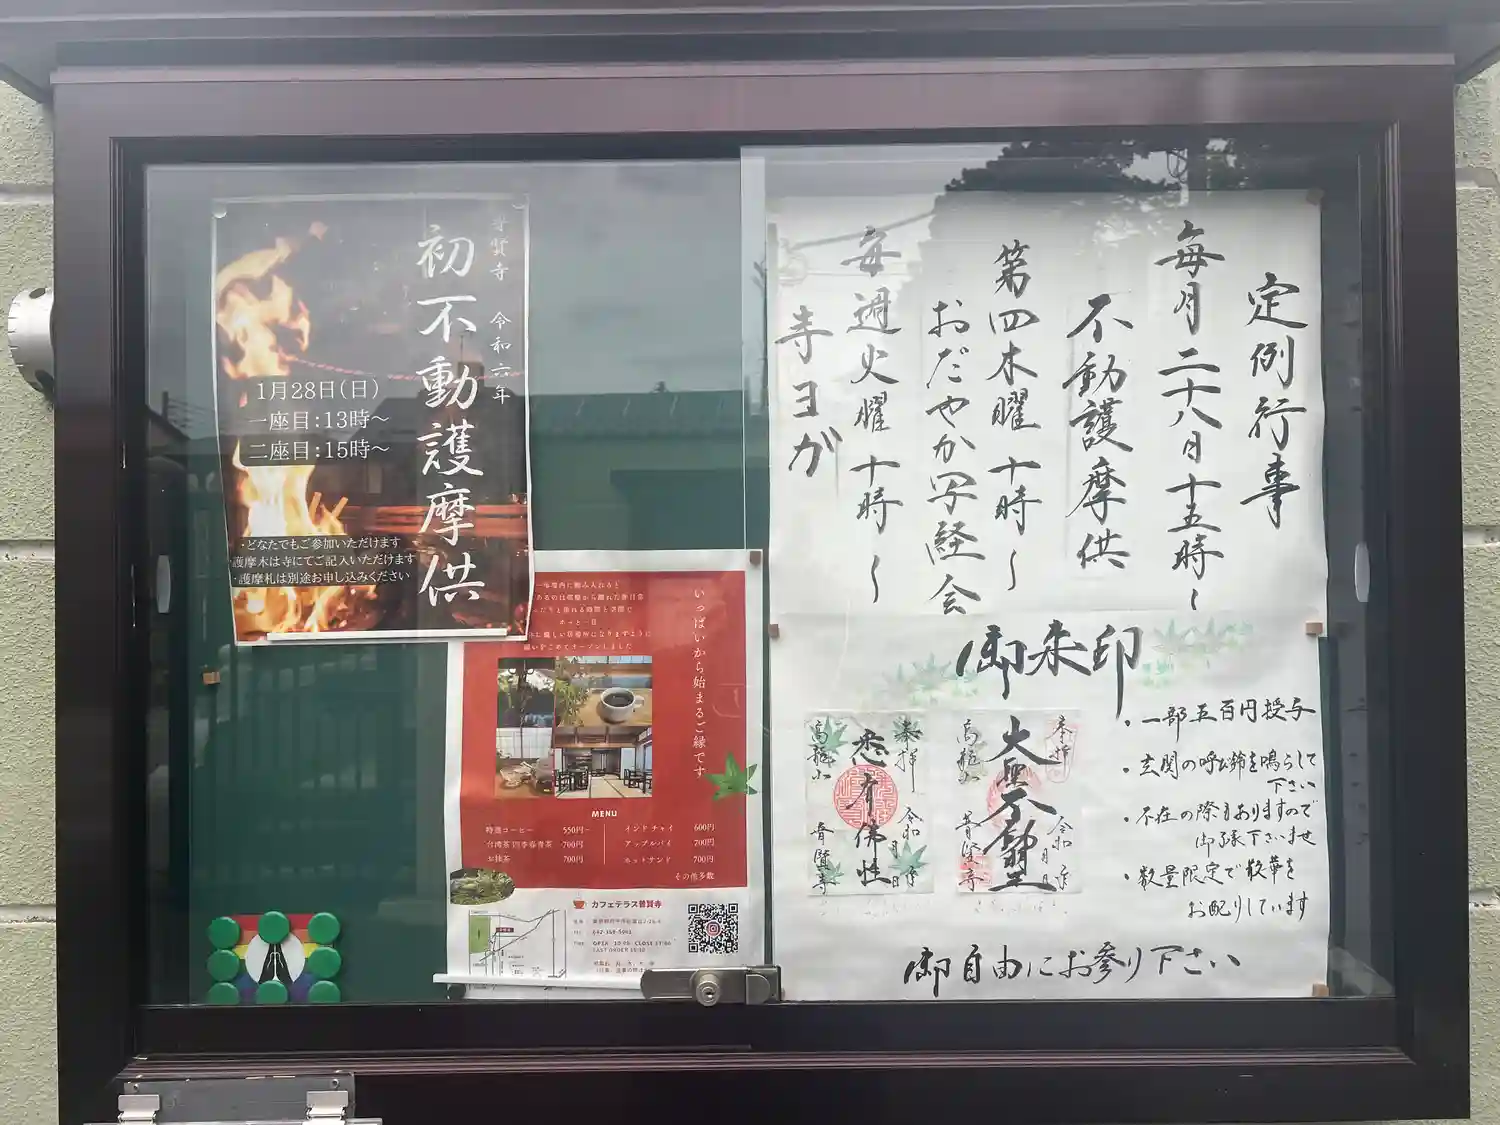 定例行事
毎月二十八日十五時〜
不動護摩供
第四木曜十時〜
おだやか写経会
毎週火曜十時〜
寺ヨガ
御朱印
・一部五百円授与
・玄関の呼び鈴を鳴らして
下さい
・不在の際もありますので
御了承下さいませ
・数量限定で散華を
お配りしています
奉拝
大聖不動明王
高龍山
普賢寺
令和 年 月 日
奉拝
悉有佛性
高龍山
普賢寺
令和 年 月 日
御自由にお参り下さい
普賢寺 令和六年
初不動護摩供
1月28日(日)
一座目:13時〜
二座目:15時〜
・どなたでもご参加いただけます
・護摩木は寺にてご記入いただけます
・護摩札は別途お申し込みください
いっぱいから始まるご縁です
ホッと一息
願いをこめてオープンしました
MENU
特選コーヒー 550円~
台湾茶 四季春青茶 700円
お抹茶 700円
インドチャイ 600円
アップルパイ 700円
ホットサンド 700円
その他多数
カフェテラス普賢寺
OPEN 10:00 CLOSE 17:00